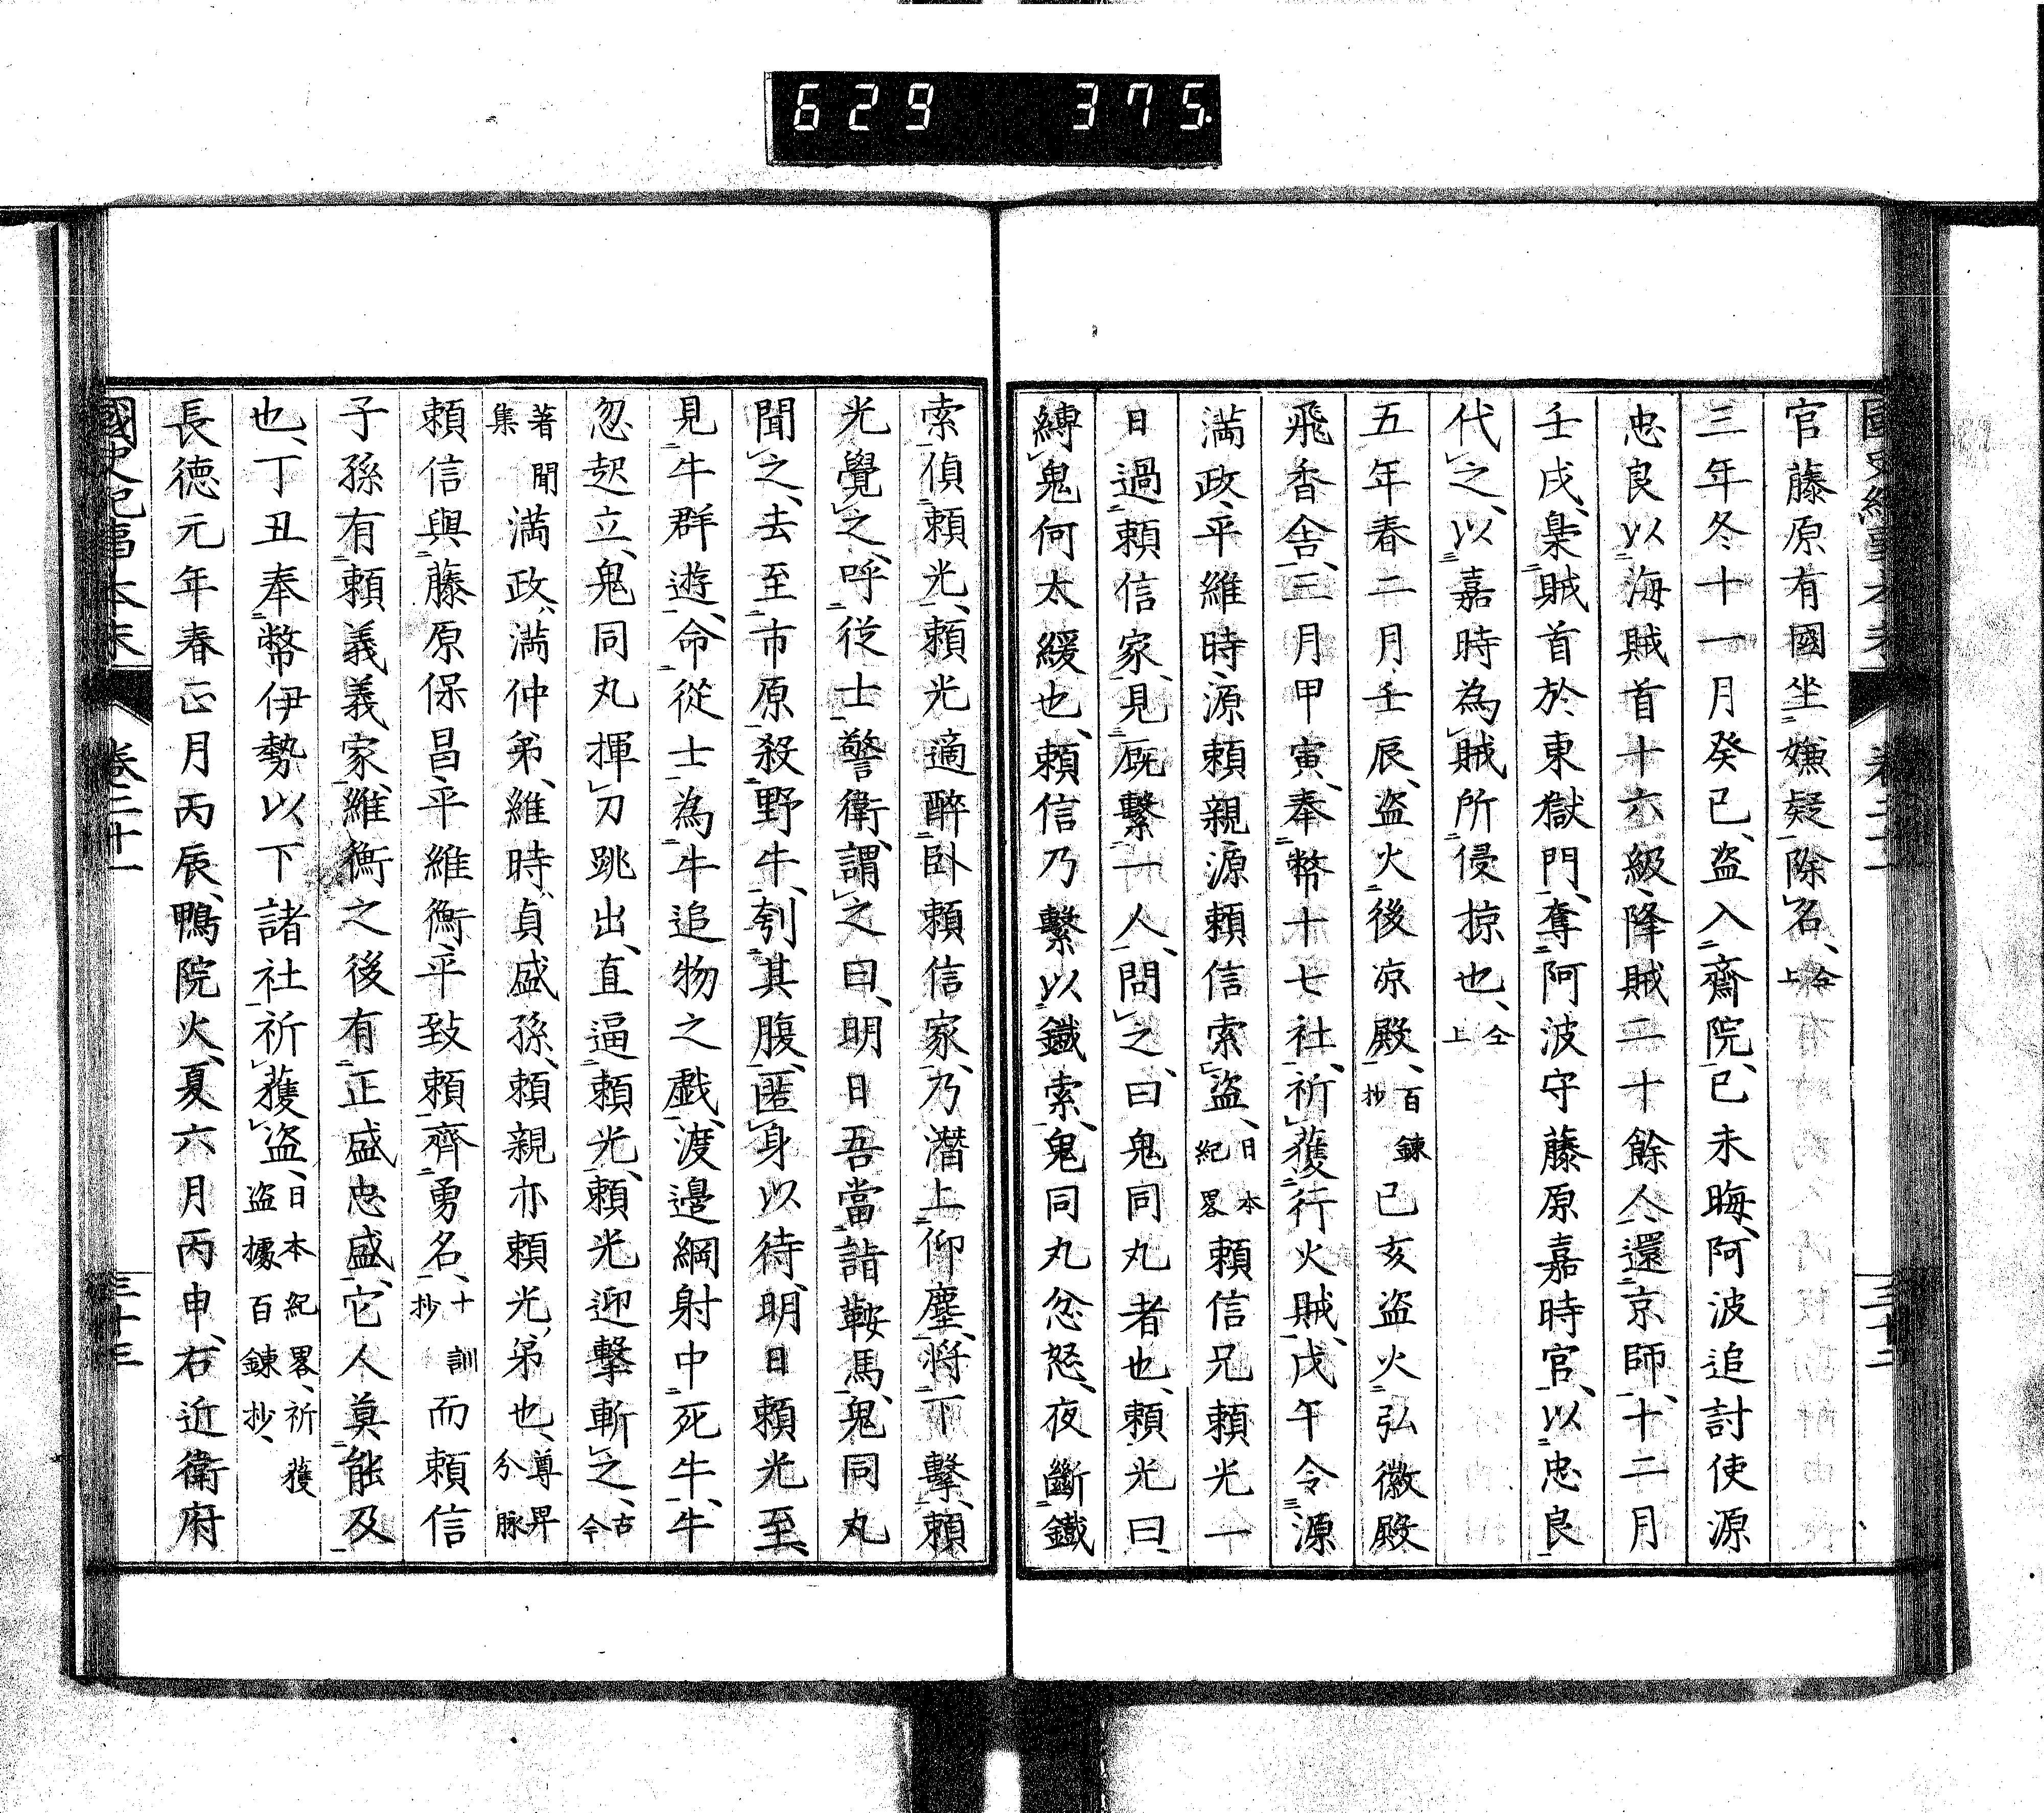 629 375
官藤原有國坐嫌疑除名、仝上
三年冬十一月癸巳、盜入齋院、已未晦、阿波追討使源
忠良以海賊首十六級、降賊二十餘人、還京師、十二月
壬戌、梟賊首於東獄門、奪阿波守藤原嘉時官、以忠良
代之、以嘉時為賊所侵掠也、仝上
五年春二月、壬辰、盜火後凉殿、百鍊抄己亥盜火弘徽殿
飛香舍、三月甲寅、奉幣十七社、祈獲行火賊、戊午令源
滿政、平維時、源賴親、源賴信索盜、日本紀畧賴信兄賴光一
日過賴信家、見厩繫一人、問之、曰鬼同丸者也、賴光曰、
縛鬼何太緩也、賴信乃繫以鐵索、鬼同丸忿怒、夜斷鐵
索偵賴光、賴光適醉卧賴信家、乃潛上仰塵、將下擊、賴
光覺之、呼從士警衛、謂之曰、明日吾當詣鞍馬、鬼同丸
聞之、去至市原、殺野牛、刳其腹、匿身以待、明日賴光至、
見牛群遊、命從士為牛追物之戲、渡邊綱射中死牛、牛
忽起立、鬼同丸揮刀跳出、直逼賴光、賴光迎擊斬之、古今
著聞集滿政、滿仲弟、維時、貞盛孫、賴親亦賴光弟也、尊卑分脉
賴信與藤原保昌、平維衡、平致賴、齊勇名、十訓抄而賴信
子孫有賴義義家、維衡之後有正盛忠盛、它人莫能及
也、丁丑奉幣伊勢以下諸社祈獲盜、日本紀畧、祈獲盜據百鍊抄、
長德元年春正月丙辰、鴨院火、夏六月丙申、右近衛府
國史紀事本末 卷二十一 三十三